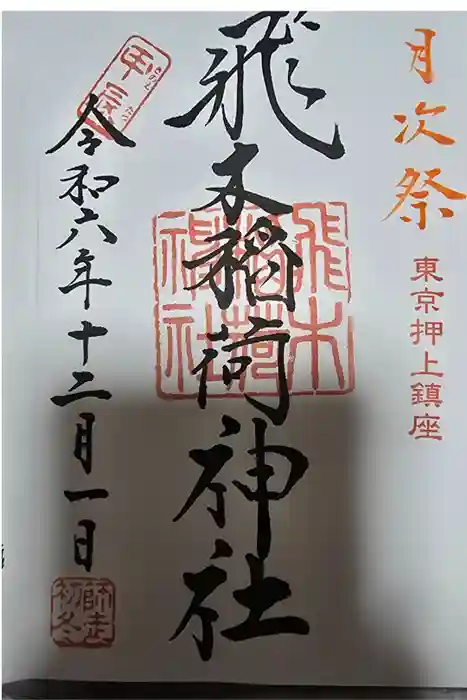 月次祭
東京押上鎮座
飛木稲荷神社
飛木稲荷神社
甲辰
きのえ
たつ
令和六年十二月一日
師走
初冬